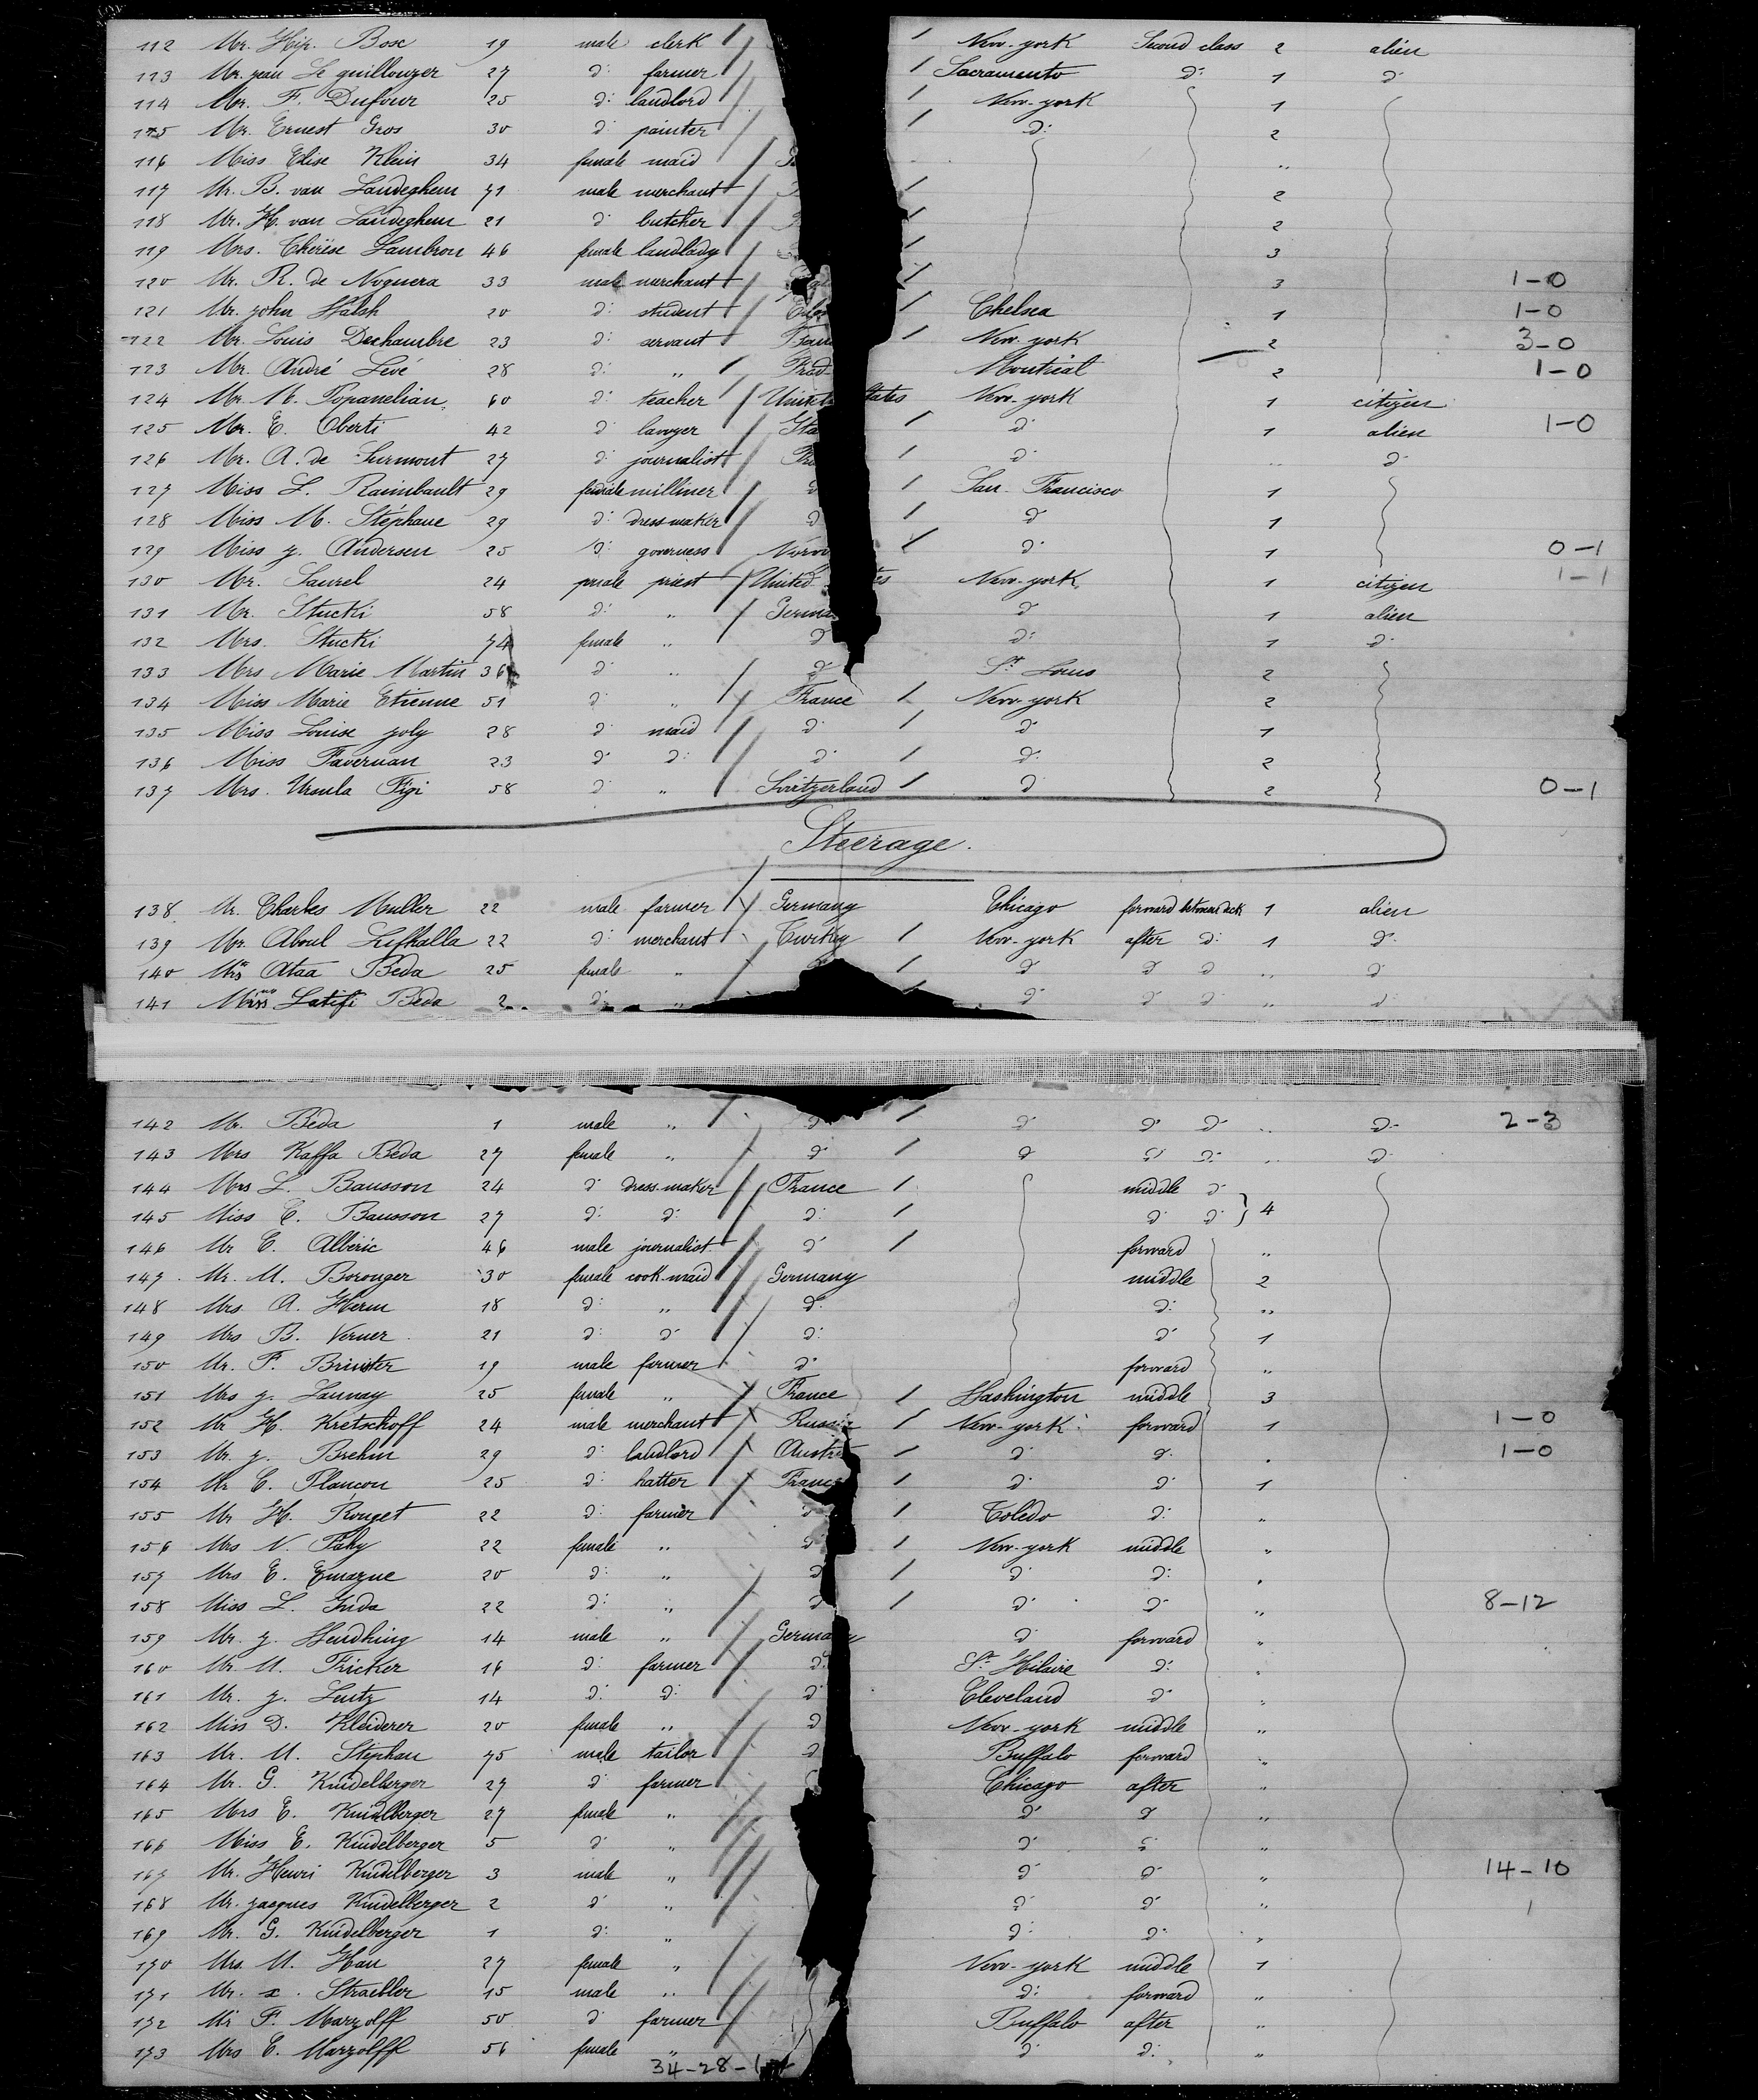 112 Mr. Hip. Bosc 19 male clerk New-york Second class 2 alien
113 Mr. jean Le guillouzer 27 d: farmer Sacramento d: 1 d:
114 Mr. F. Dufour 25 d: landlord New-york 1
115 Mr. Ernest Gros 30 d: painter d: 2
116 Miss Elise Klein 34 female maid "
117 Mr. B. van Landeghem 71 male merchant 2
118 Mr. H. van Landeghem 21 d: butcher 2
119 Mrs. Thérèse Lambron 46 female landlady 3
120 Mr. R. de Noguera 33 male merchant 3 1-0
121 Mr. john Walsh 20 d: student Chelsea 1 1-0
122 Mr. Louis Deschambre 23 d: servant New-york 2 3-0
123 Mr. André Lévé 28 d: " Montréal 2 1-0
124 Mr. M. Topanelian 60 d: teacher United States New-york 1 citizen
125 Mr. E. Oberti 42 d: lawyer d: 1 alien 1-0
126 Mr. A. de Surmont 27 d: journalist d: " d:
127 Miss L. Raimbault 29 female milliner d San-Francisco 1
128 Miss M. Stéphane 29 d: dress-maker d d: 1
129 Miss j. Andersen 25 d: governess d: 1 0-1
130 Mr. Saurel 24 male priest United New-york 1 citizen 1-1
131 Mr. Stucki 58 d: " Germa d: 1 alien
132 Mrs. Stucki 74 female " d d: 1 d:
133 Mrs Marie Martin 36 d: " d St Louis 2
134 Miss Marie Etienne 51 d: " France New-york 2
135 Miss Louise joly 28 d: maid d: d: 1
136 Miss Tavernan 23 d: d: d: d: 2
137 Mrs. Ursula Figi 58 d: " Switzerland d: 2 0-1
Steerage.
138 Mr. Charles Muller 22 male farmer Germany Chicago forward between deck 1 alien
139 Mr. Aboul Lifhalla 22 d: merchant Turkey New-york after d: 1 d:
140 Mrs Ataa Béda 25 female " d: d: d: " d:
141 Miss Latifi Béda 2 d: " d: d: d: " d:
142 Mr. Béda 1 male " d: d: d: d: " d: 2-3
143 Mrs Kaffa Béda 27 female " d: d: d: d: " d:
144 Mrs L. Bausson 24 d: dress-maker France middle d:
145 Miss E. Bausson 27 d: d: d: d: d: } 4
146 Mr C. Albéric 46 male journalist d: forward "
147 Mr. M. Boronger 30 female cook-maid Germany middle 2
148 Mrs. A. Herm 18 d: " d: d: "
149 Mrs B. Verner 21 d: d: d: d: 1
150 Mr. F. Brinster 19 male farmer d: forward "
151 Mrs j. Launay 25 female " France Washington middle 3
152 Mr H. Kretschoff 24 male merchant Russia New-york forward 1 1-0
153 Mr. j. Brehm 29 d: landlord Austri d: d: " 1-0
154 Mr C. Plançon 25 d: hatter France d: d: 1
155 Mr H. Rouget 22 d: farmer d: Toledo d: "
156 Mrs N. Paky 22 female " d: New-york middle "
157 Mrs E. Emazue 20 d: " d d: d: "
158 Miss L. Inda 22 d: " d d: d: " 8-12
159 Mr. j. Hendking 14 male " Germany d: forward "
160 Mr. M. Fricker 16 d: farmer d: St Hilaire d: "
161 Mr. j. Lutz 14 d: d: d Cleveland d: "
162 Miss D. Kleiderer 20 female " d New-york middle "
163 Mr. M. Stephan 75 male tailor d Buffalo forward "
164 Mr. G. Kindelberger 27 d: farmer Chicago after "
165 Mrs E. Kindelberger 27 female " d: d: "
166 Miss E. Kindelberger 5 d: " d: d: "
167 Mr. Henri Kindelberger 3 male " d: d: " 14-10
168 Mr. jacques Kindelberger 2 d: " d: d: " 1
169 Mr. G. Kindelberger 1 d: " d: d: "
170 Mrs. M. Hau 27 female " New-york middle 1
171 Mr. x. Straebler 15 male " d: forward "
172 Mr F. Marzolff 50 d: farmer Buffalo after "
173 Mrs C. Marzolff 56 female " d: d: "
34-28-1